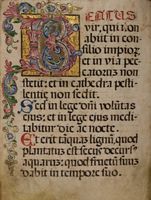 BEATUS
vir, qui non
abiit in con-
silio impiorum,
et in via pec-
catorum non
stetit: et in cathedra pesti-
lentiae non sedit.
Sed in lege domini voluntas
eius; et in lege eius medi-
tabitur die ac nocte.
Et erit tamquam lignum, quod
plantatum est secus decursus
aquarum: quod fructum suum
dabit in tempore suo.